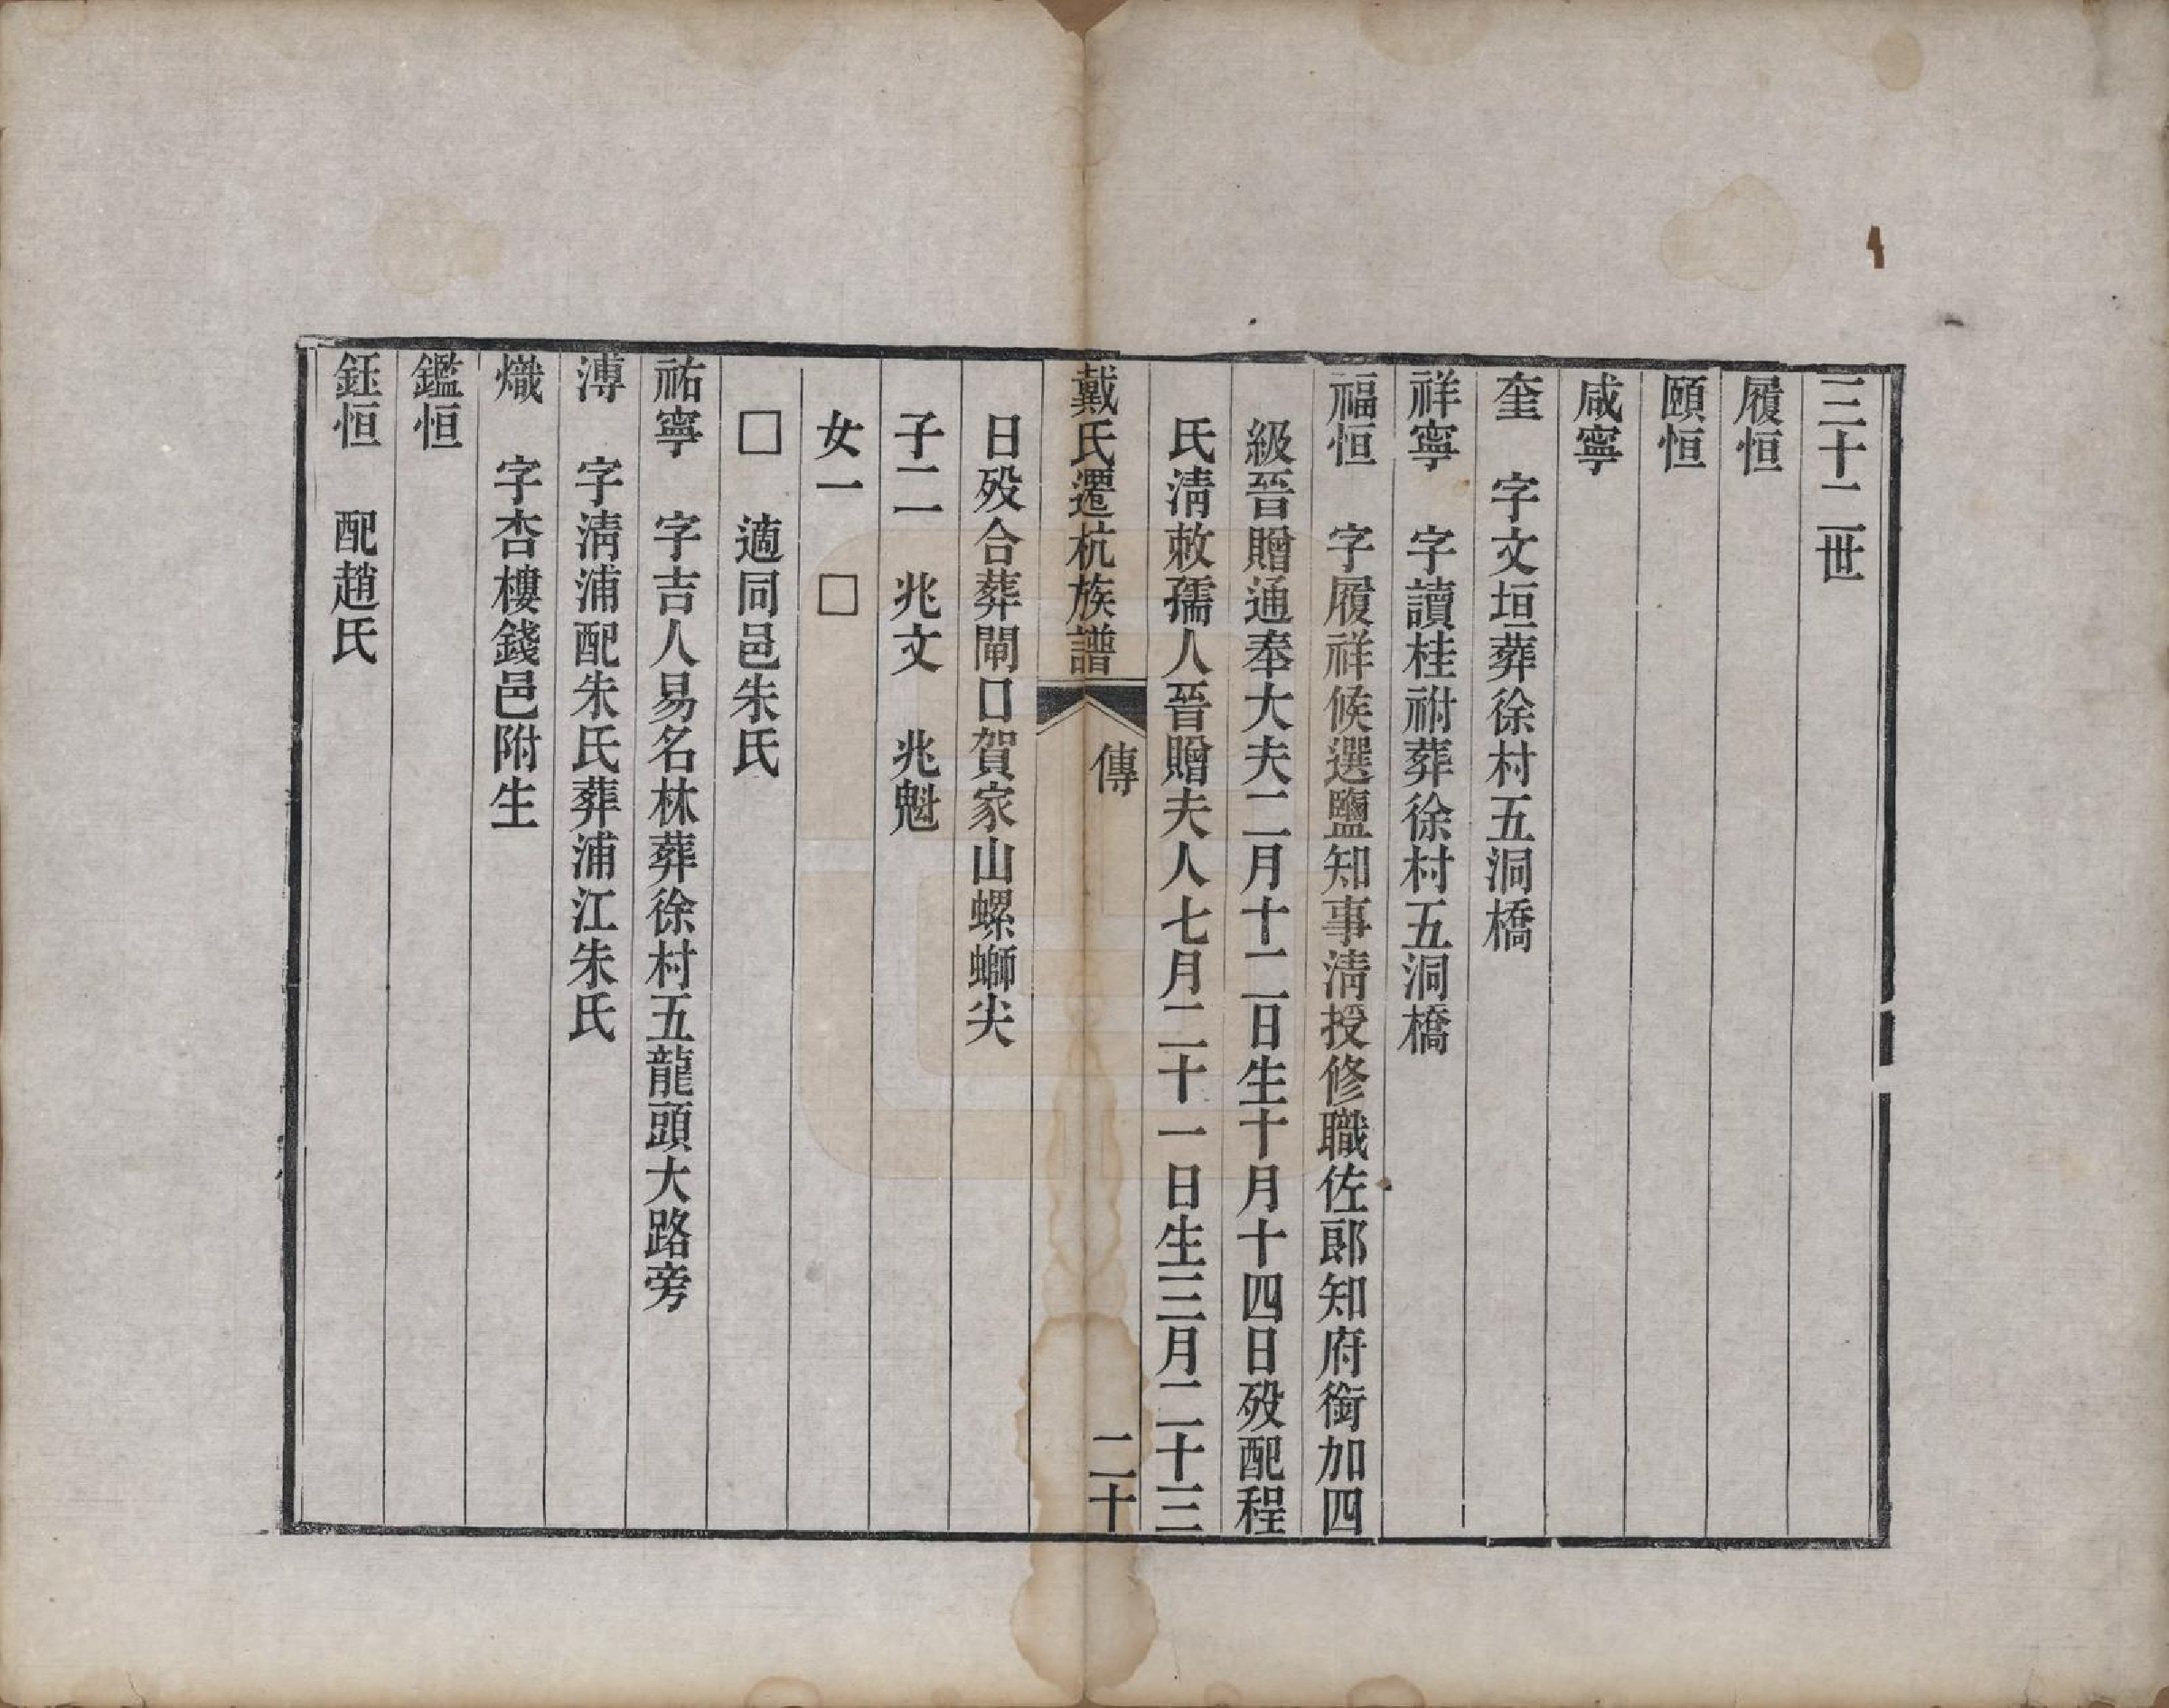 三十二世
履恒
頤恒
咸寧
奎　字文垣葬徐村五洞橋
祥寧　字讀桂祔葬徐村五洞橋
福恒　字履祥候選鹽知事清授修職佐郎知府銜加四
級晉贈通奉大夫二月十二日生十月十四日歿配程
氏清敕孺人晉贈夫人七月二十一日生三月二十三
戴氏遷杭族譜　傳　二十
日歿合葬閘口賀家山螺螄尖
子二　兆文　兆魁
女一　□
□　適同邑朱氏
祐寧　字吉人易名林葬徐村五龍頭大路旁
溥　字清浦配朱氏葬浦江朱氏
熾　字杏樓錢邑附生
鑑恒
鈺恒　配趙氏